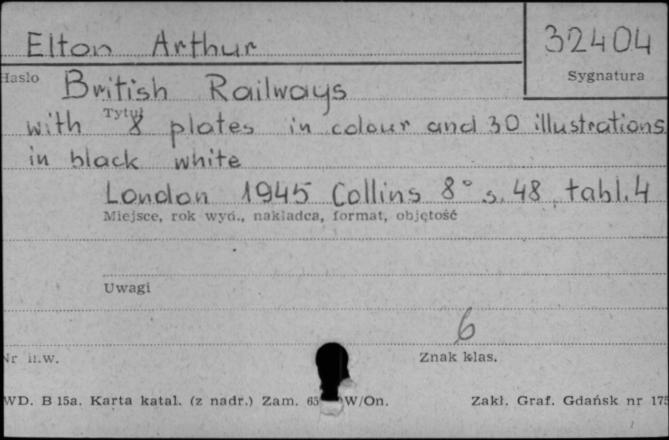 Elton Arthur 32404
Hasło Sygnatura
British Railways
Tytuł
with 8 plates in colour and 30 illustrations
in black white
London 1945 Collins 8° s. 48, tabl. 4
Miejsce, rok wyd., nakładca, format, objętość
Uwagi
6
Nr inw. Znak klas.
WD. B 15a. Karta katal. (z nadr.) Zam. 65 W/On. Zakł. Graf. Gdańsk nr 175